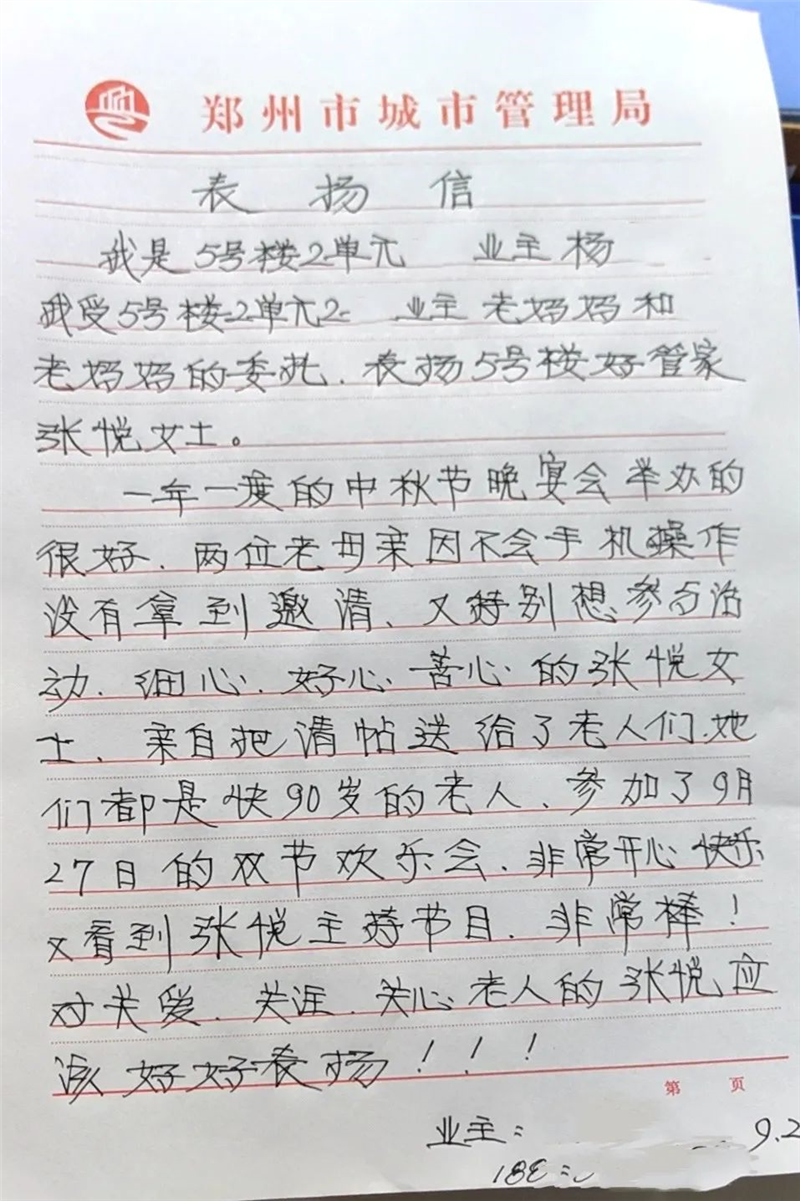 郑州市城市管理局
表扬信
我是5号楼2单元 业主杨
我受5号楼2单元2 业主老妈妈和
老妈妈的委托、表扬5号楼好管家
张悦女士。
一年一度的中秋节晚宴会举办的
很好、两位老母亲因不会手机操作
没有拿到邀请、又特别想参与活
动、细心、好心、善心的张悦女
士、亲自把请帖送给了老人们、她
们都是快90岁的老人、参加了9月
27日的双节欢乐会、非常开心快乐
又看到张悦主持节目、非常棒!
对关爱、关注、关心老人的张悦应
该好好表扬!!!
第 页
业主: 9.2